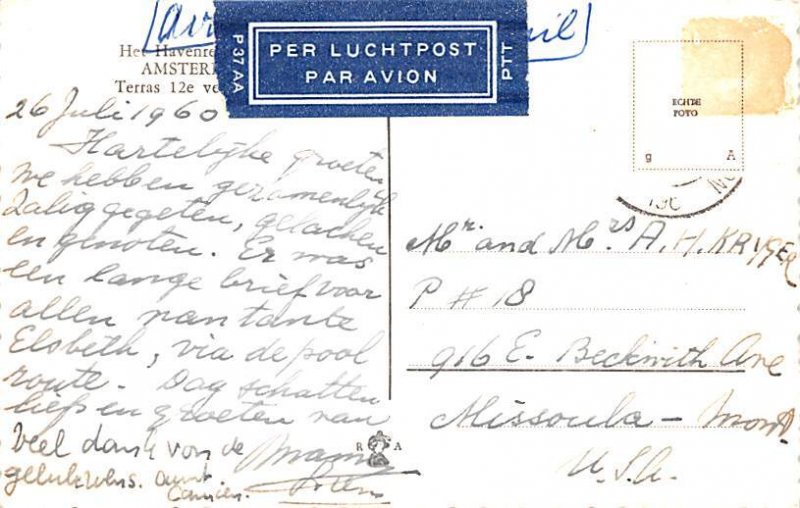 air
mail
P37AA
PER LUCHTPOST
PAR AVION
PTT
Het Havenre
AMSTER
Terras 12e ve
ECHTE
FOTO
g A
26 Juli 1960
Hartelijke groeten
We hebben gezamenlijk
zalig gegeten, gelachen
en genoten. Er was
een lange brief voor
allen van tante
Elsbeth, via de pool
route. Dag schatten
liefs en groeten van
Mama
Veel dank von de
gelukwens. Aunt
R A
Mr. and Mrs A. H. KRYGER
P # 18
916 E. Beckwith Ave
Missoula - Mont
U.S.A.